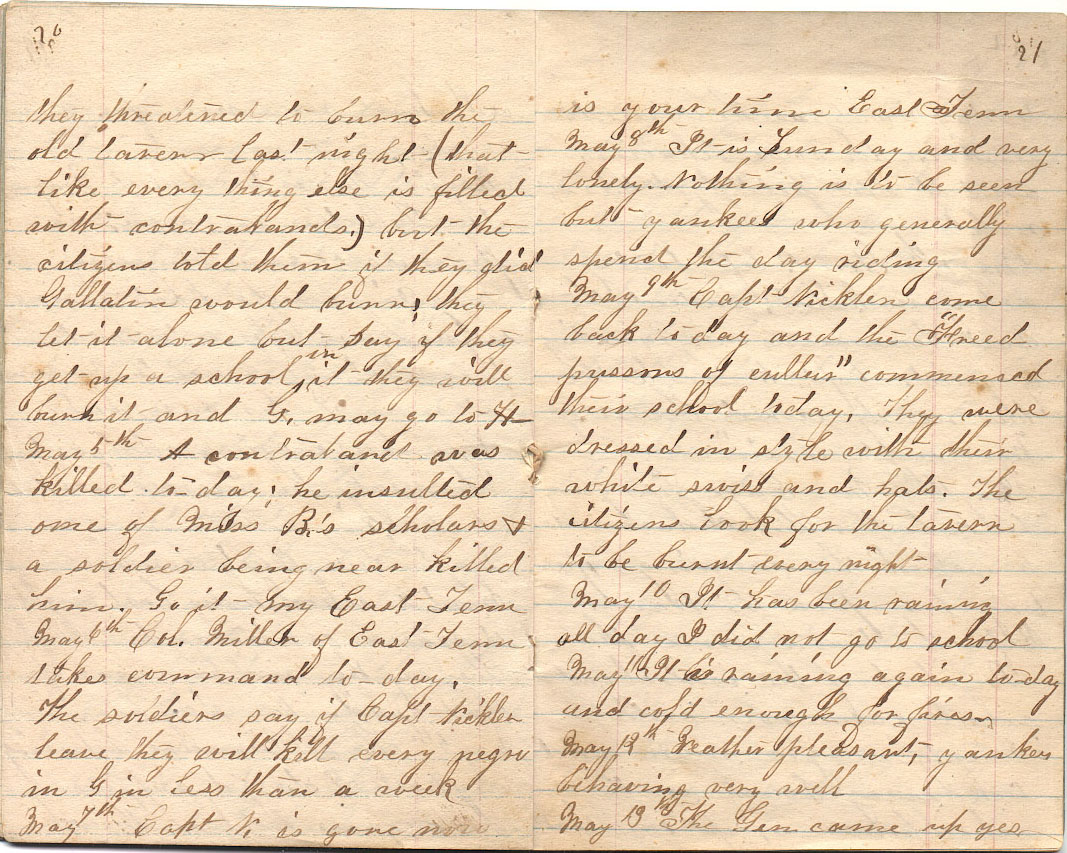 20
they threatened to burn the
old tavern last night (that
like every thing else is filled
with contrabands.) but the
citizens told them if they did
Gallatin would burn; they
let it alone but say if they
get up a school in it they will
burn it and G. may go to H—
May 5th A contraband was
killed to-day; he insulted
one of Miss B.'s scholars &
a soldier being near killed
him. Go it my East Tenn
May 6th Col. Miller of East Tenn
takes command to-day.
The soldiers say if Capt Nicklen
leave they will kill every negro
in G in less than a week
May 7th Capt N. is gone now
21
is your time East Tenn
May 8th It is Sunday and very
lonely. Nothing is to be seen
but yankees who generally
spend the day riding
May 9th Capt Nicklen come
back to day and the "Freed
pussons of culler" commenced
their school today, They were
dressed in style with their
white swiss and hats. The
citizens look for the tavern
to be burnt every night
May 10 It has been raining
all day I did not go to school
May 11 It is raining again to-day
and cold enough for fires
May 12th Weather pleasant, yankees
behaving very well
May 13th The Gen came up yes